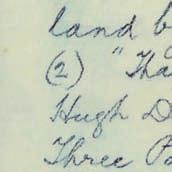 land b
(2) "Tha
Hugh D
Three P